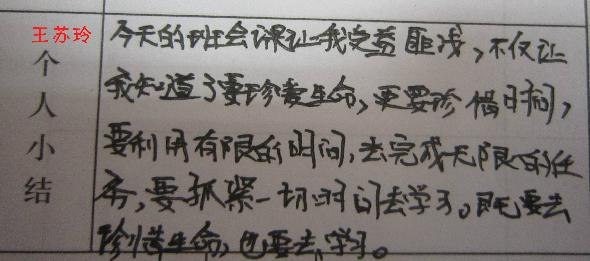 王苏玲
个人小结
今天的班会课让我受益匪浅，不仅让
我知道了要珍爱生命，更要珍惜时间，
要利用有限的时间，去完成无限的任
务，要抓紧一切时间去学习。既要去
珍惜生命，也要去学习。